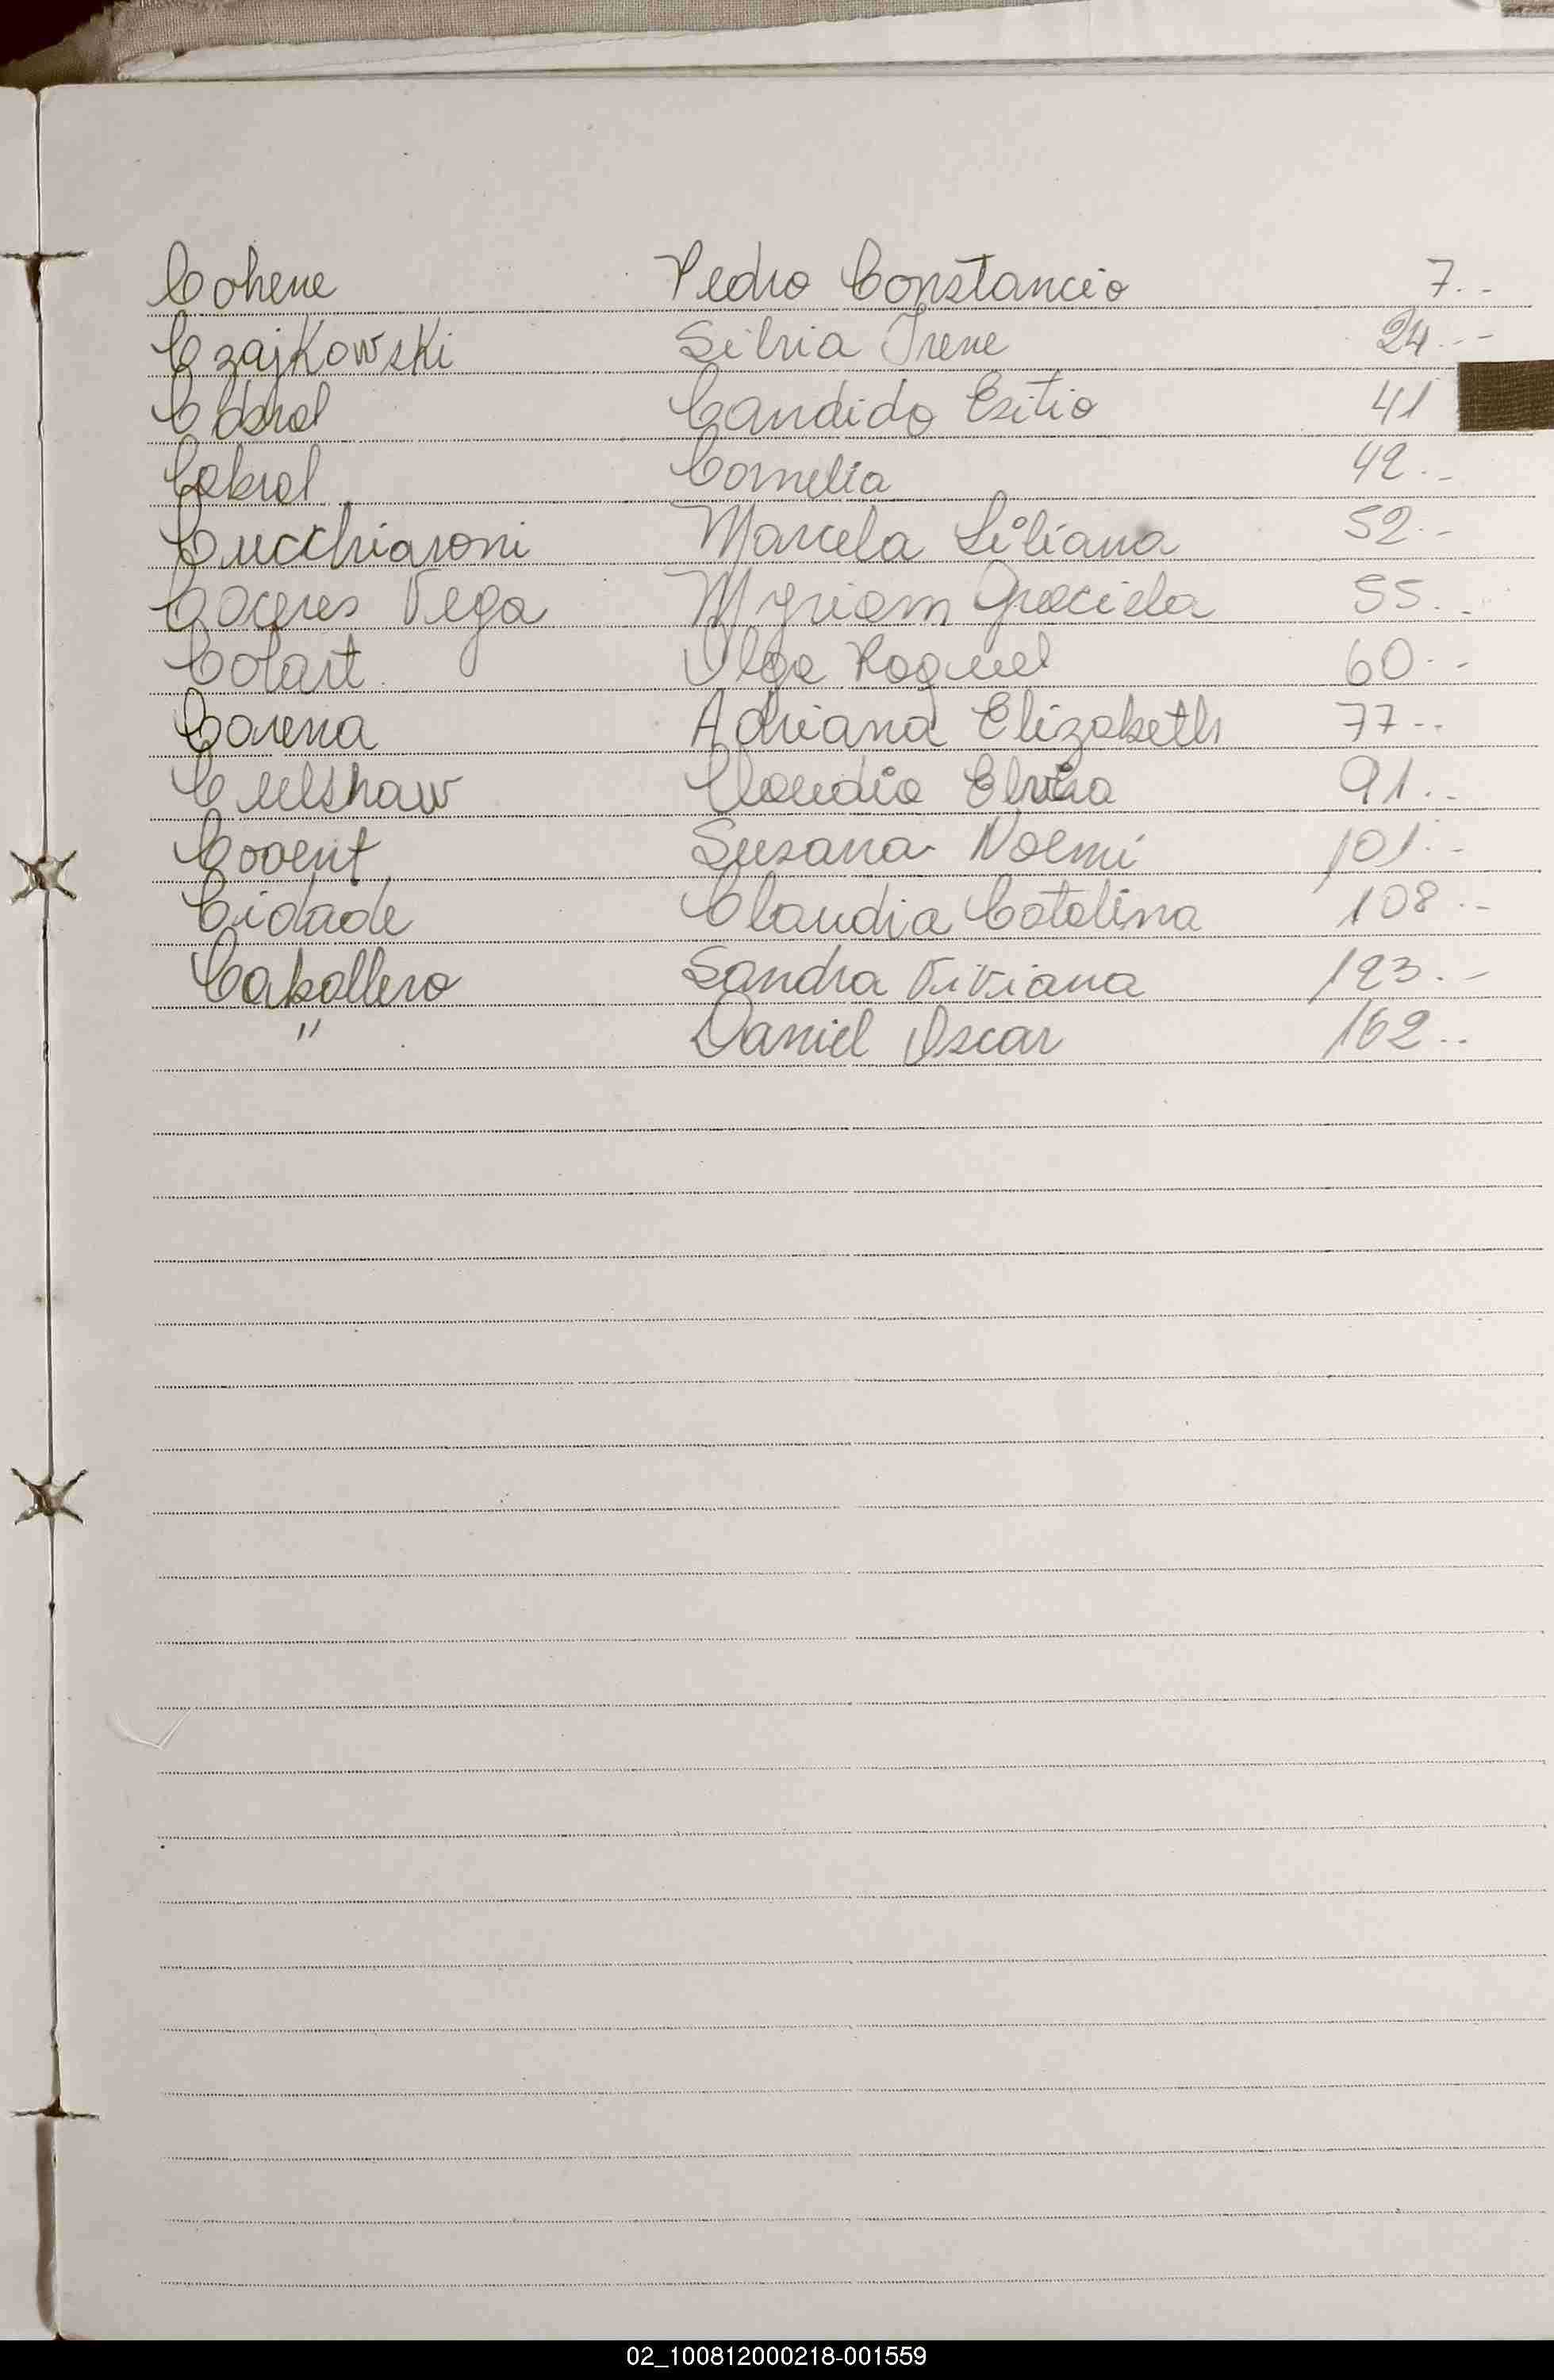 Cohene Pedro Constancio 7..
Czajkowski Silvia Irene 24...
Cabral Candido Exitio 41
Cabral Cornelia 42..
Cucchiaroni Marcela Liliana 52..
Caceres Vega Myriam Graciela 55..
Colart Olga Raquel 60..
Corena Adriana Elizabeth 77..
Culshaw Claudia Elvira 91..
Covent Susana Noemi 101..
Cidade Claudia Catalina 108..
Caballero Sandra Viviana 123..
" Daniel Oscar 162..
02_100812000218-001559